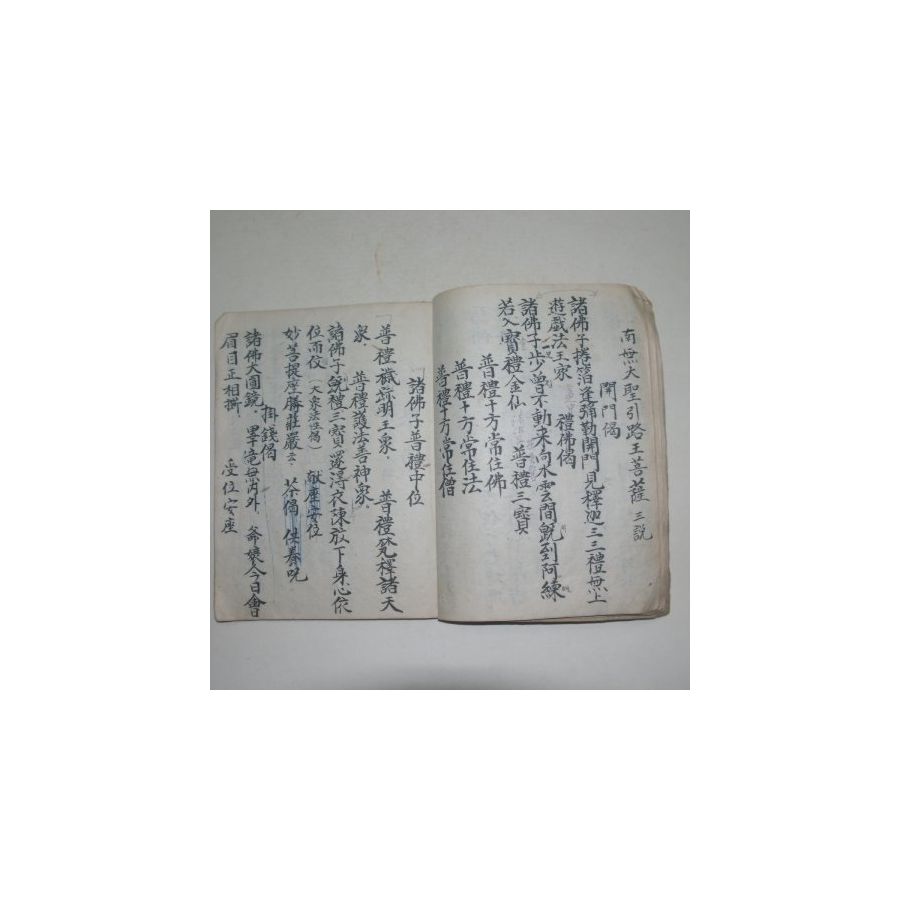 南無大聖引路王菩薩 三說
開門偈
諸佛子捲箔逢彌勒開門見釋迦三三禮無上
遊戲法王家 禮佛偈
諸佛子步曾不動來向水雲間旣到阿練
若入室禮金仙 普禮三寶
普禮十方常住佛
普禮十方常住法
普禮十方常住僧
諸佛子普禮中位
普禮穢跡明王衆. 普禮梵釋諸天
衆. 普禮護法善神衆.
諸佛子旣禮三寶還得衣 放下身心依
位而 (大衆法性偈) 献座安位
妙菩提座勝莊嚴云云 茶偈 供養呪
掛錢偈
諸佛大圓鏡. 畢竟無內外. 爺孃今日會
眉目正相撕 受位安座